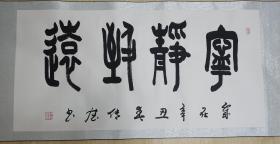 寧靜致遠
歲在辛丑 书